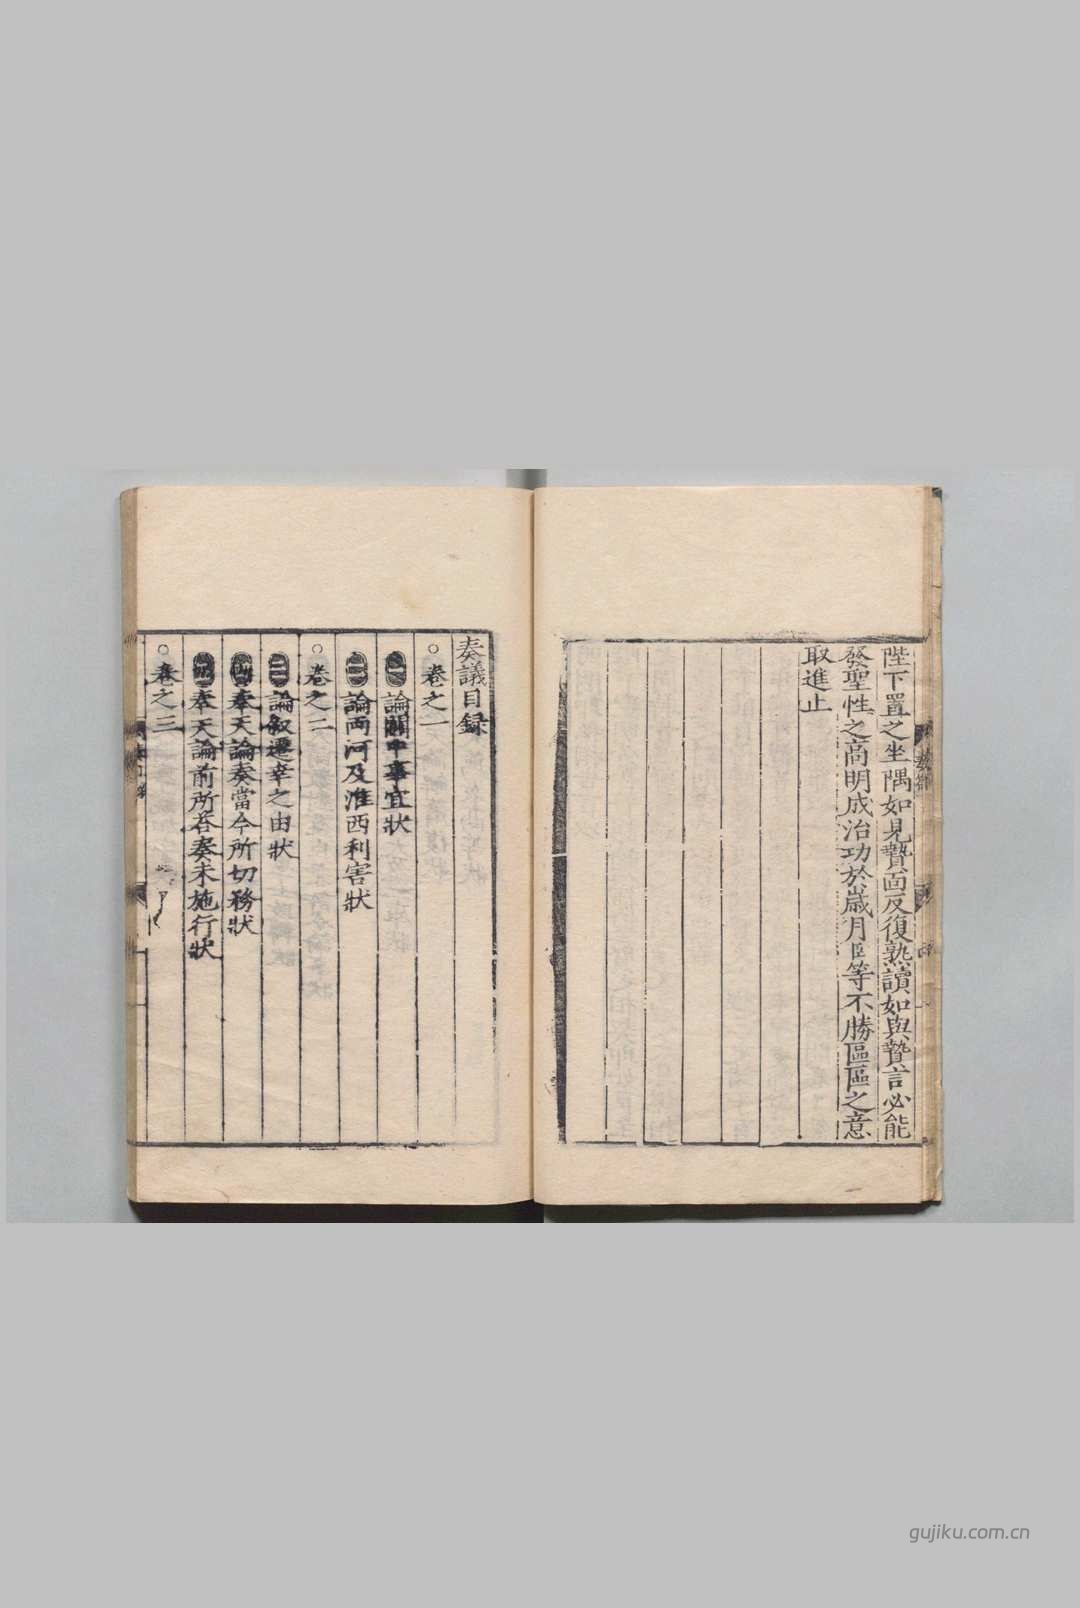 陛下置之坐隅如見贄面反復熟讀如與贄言必能
發聖性之高明成治功於歲月臣等不勝區區之意
取進止
奏議目録
○卷之一
一論關中事宜狀
二論両河及淮西利害狀
○卷之二
三論叙遷幸之由狀
四奉天論奏當今所切務狀
五奉天論前所荅奏未施行狀
○卷之三
gujiku.com.cn